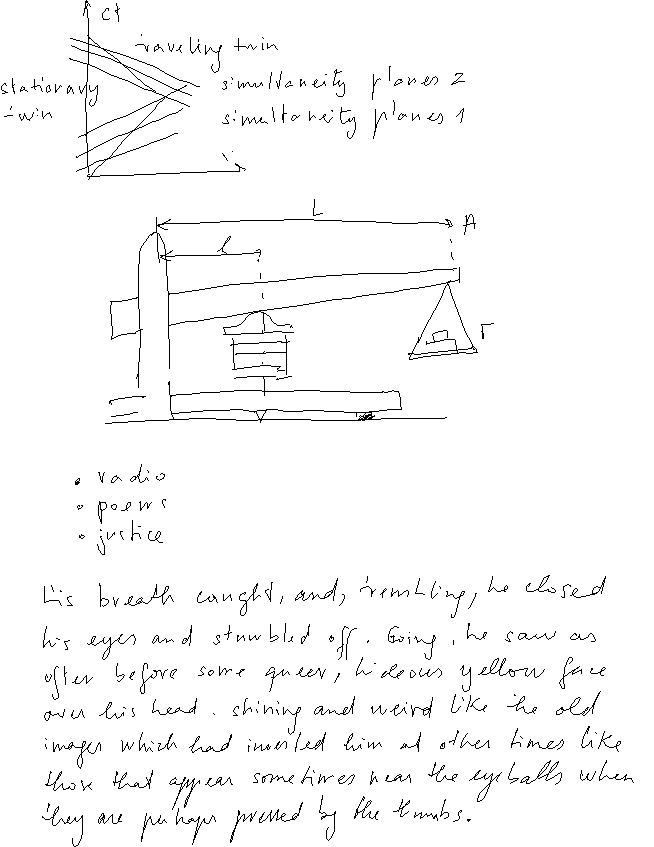 ct
traveling twin
stationary
simultaneity planes 2
twin
simultaneity planes 1
L
A
l
r
• radio
• poems
• justice
his breath caught, and, trembling, he closed
his eyes and stumbled off. Going, he saw as
often before some queer, hideous yellow face
over his head. shining and weird like the old
images which had invested him at other times like
those that appear sometimes near the eyeballs when
they are perhaps pressed by the thumbs.